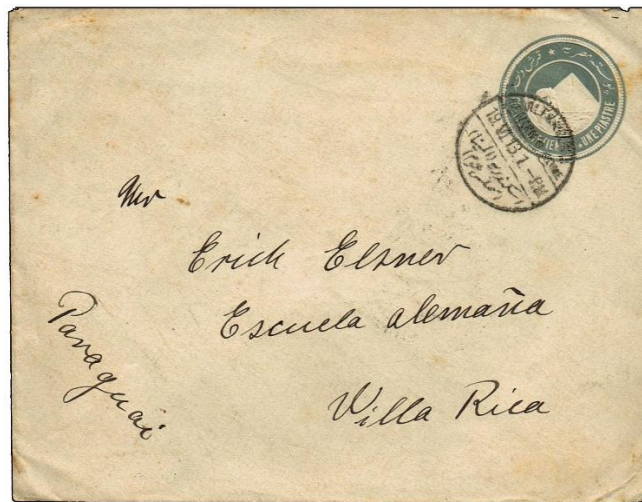 بوستة مصرية
ONE PIASTRE
ALEXANDRIA
19.VI.13.7.-PM
Mr
Erich Elsner
Escuela alemaña
Villa Rica
Paraguai